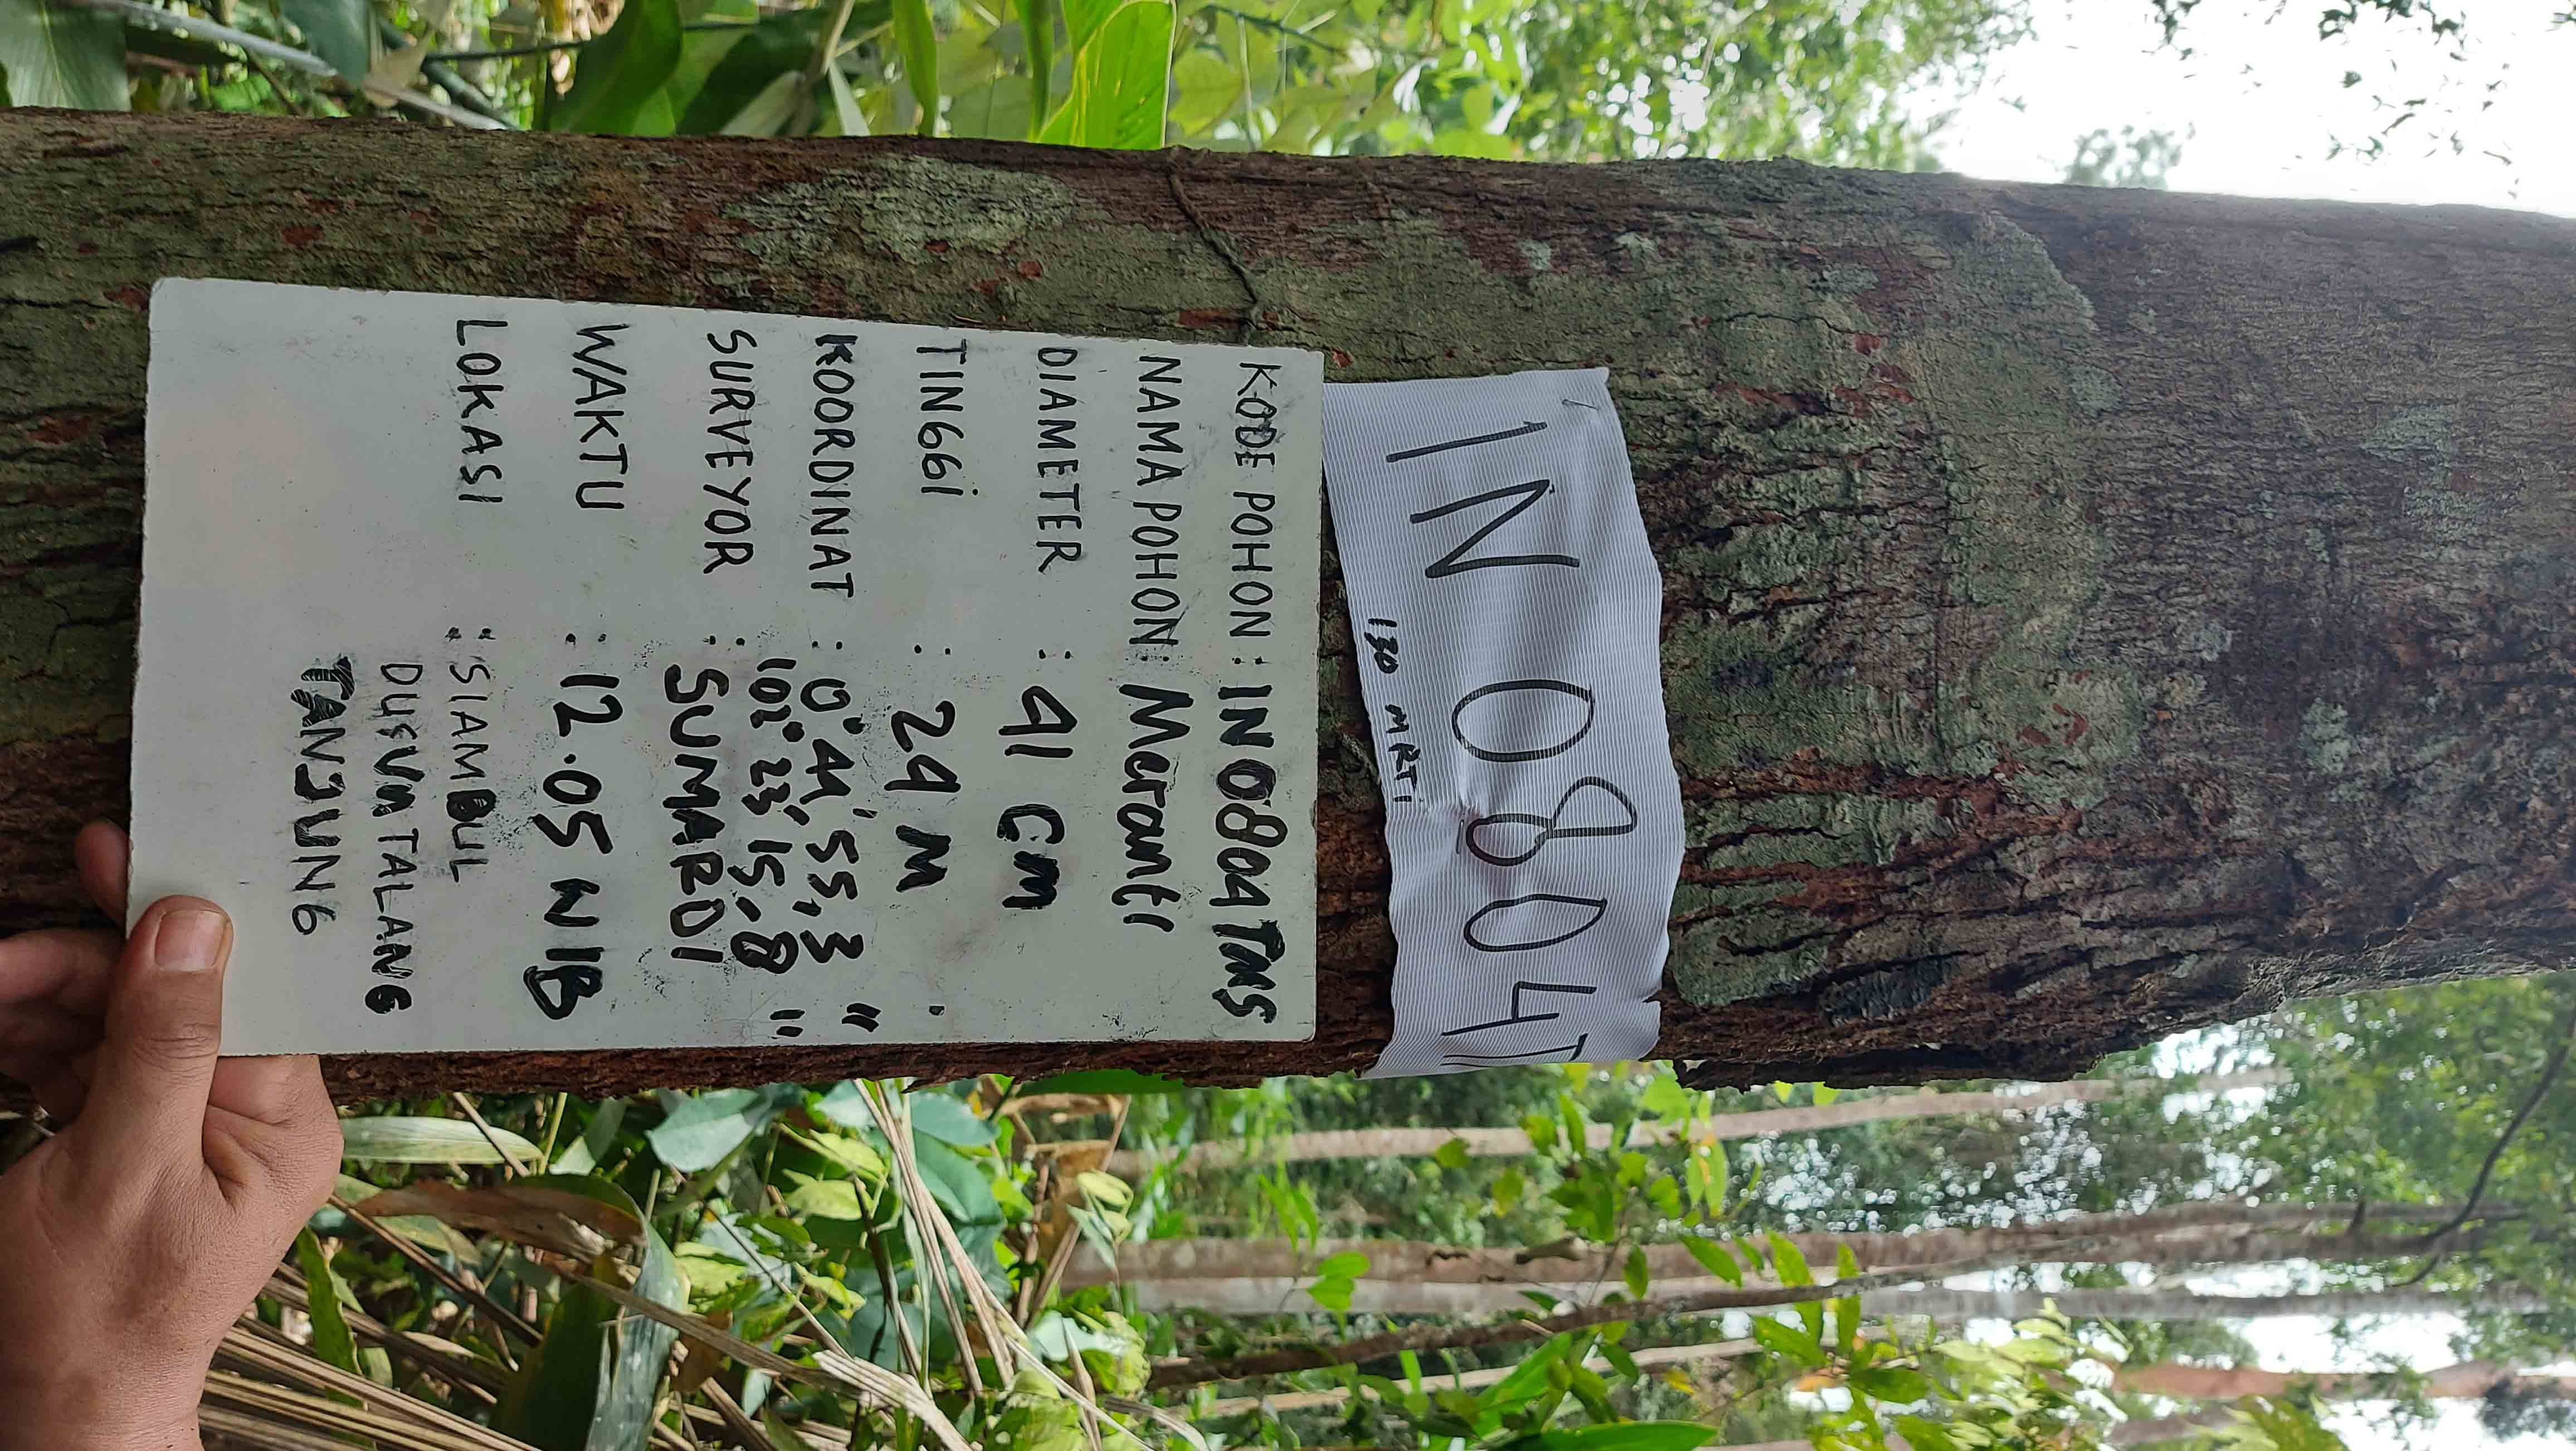 IN0804T
130 MRTI
KODE POHON : IN0804TMS
NAMA POHON : Meranti
DIAMETER : 41 CM
TINGGi : 24 M
KOORDINAT : 0° 44' 55,3"
102° 23' 15,8"
SURVEYOR : SUMARDI
WAKTU : 12.05 WIB
LOKASI : SIAMBUL
DUSUN TALANG
TANJUNG